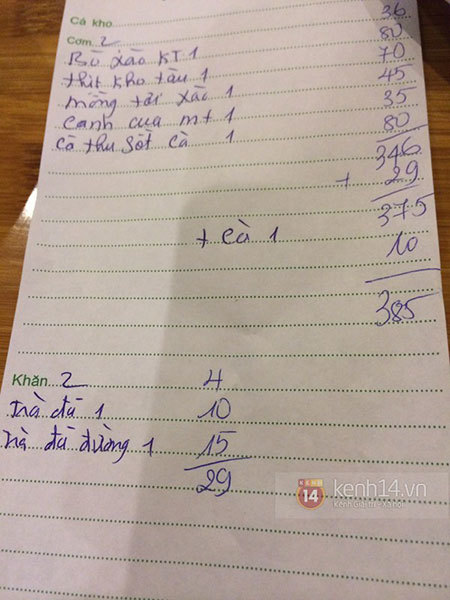 Cá kho
Cơm 2 36
Bò xào KT 1 80
thịt kho tàu 1 70
mồng tơi xào 1 45
canh cua mt 1 35
cá thu sốt cà 1 80
346
+ 29
375
+ cà 1 10
385
Khăn 2 4
trà đá 1 10
trà đá đường 1 15
29
KENH 14 kenh14.vn
Kênh Giải trí - Xã hội